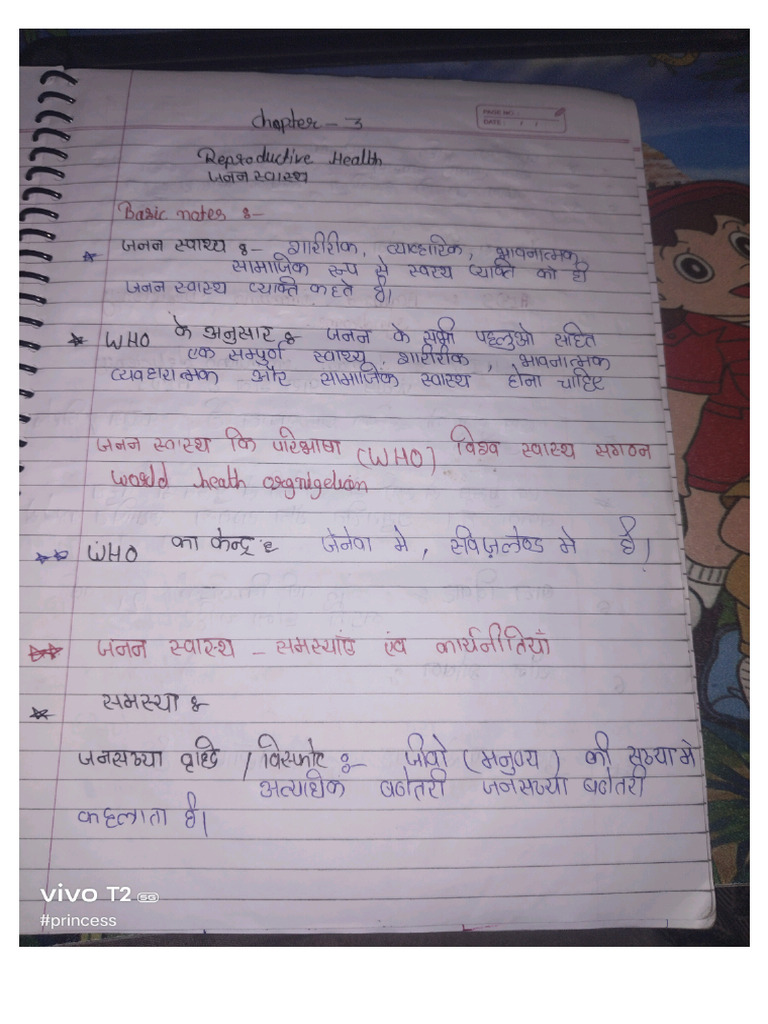 Chapter - 3
PAGE NO.
DATE : / /
Reproductive Health
जनन स्वास्थ
Basic notes :-
जनन स्वाथ्य :- शारीरीक, व्यावहारिक, भावनात्मक,
सामाजिक रूप से स्वस्थ व्यक्ति को ही
जनन स्वास्थ व्यक्ति कहते है।
WHO के अनुसार : जनन के सभी पहलुओ सहित
एक सम्पुर्ण स्वाथ्य, शारीरीक, भावनात्मक
व्यवहारात्मक और सामाजिक स्वास्थ होना चाहिए
जनन स्वास्थ कि परिभाषा (WHO) विश्व स्वास्थ सगठन
World health orgnigetion
WHO का केन्द्र : जेनेवा मे, स्विज़लेण्ड मे है।
जनन स्वास्थ - समस्याएँ एंव कार्यनीतियाँ
समस्या :
जनसख्या वृद्धि / विस्फोट :- जीवो (मनुष्य) की सख्या मे
अत्यधिक बढोतरी जनसख्या बढोतरी
कहलाता है।
vivo T2 5G
#princess